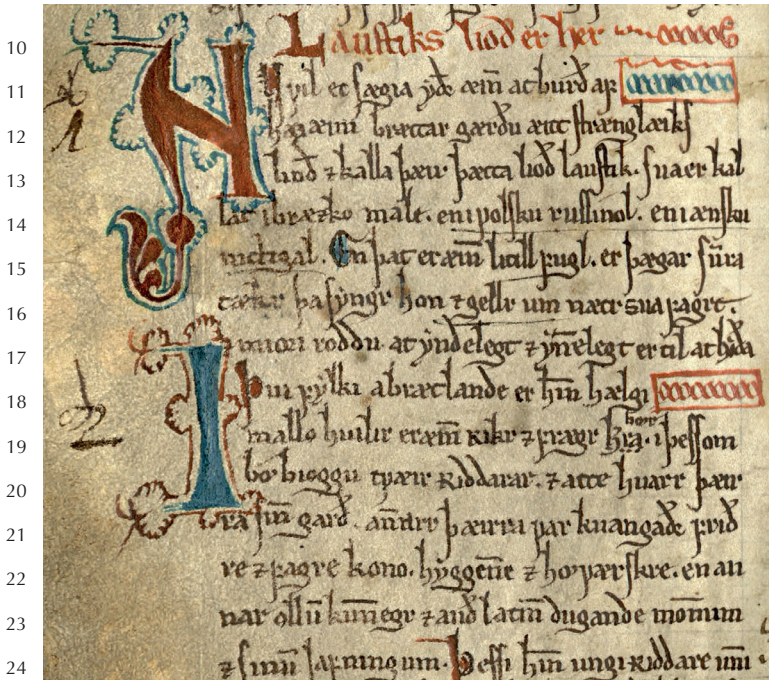 10 Laustiks lioð er her
11 NV vil ec sægia yðr æin̄ atburð aꝼ
12 þæim brættar gærðu æitt strænglæiks
13 lioð ⁊ kalla þæir þætta lioð laustik. sua er kal
14 lat i bræzko male. en i ꝩolsku russinol. en i ænsku
15 nictigal. En þat er æin̄ litill ꝼugl. er þægar sūra
16 tækr þa syngr hon ⁊ gellr um nætr sua ꝼagrt.
17 ⁊ miori roddu. at yndelegt ⁊ yn̄elegt er til at lyða
18 I þui ꝼylki a brætlande er hin̄ hælgi
19 mallo huilir er æin̄ rikr ⁊ ꝼrægr i þessom
20 bø bioggu tꝩæir riddarar. ⁊ atte huarr þæir
21 ra sin̄ garð. an̄arr þæirra ꝩar kuangaðr ꝼrið
22 re ⁊ ꝼagre kono. hyggen̄e ⁊ hoꝩærskre. en an
23 nar ollū kun̄egr ⁊ auð latin̄ dugande mon̄um
24 ⁊ sinū iaꝼningum. Þessi hin̄ ungi riddare un̄i